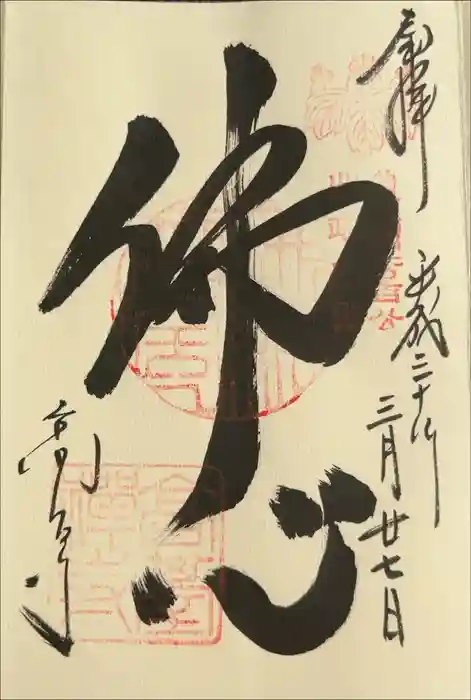 奉拝
平成三十年
三月廿七日
佛心
高台寺